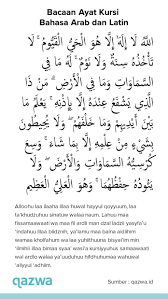 Bacaan Ayat Kursi
Bahasa Arab dan Latin
اللَّهُ لَا إِلَٰهَ إِلَّا هُوَ الْحَيُّ الْقَيُّومُ ۚ لَا
تَأْخُذُهُ سِنَةٌ وَلَا نَوْمٌ ۚ لَهُ مَا فِي
السَّمَاوَاتِ وَمَا فِي الْأَرْضِ ۗ مَنْ ذَا
الَّذِي يَشْفَعُ عِنْدَهُ إِلَّا بِإِذْنِهِ ۚ يَعْلَمُ مَا
بَيْنَ أَيْدِيهِمْ وَمَا خَلْفَهُمْ ۖ وَلَا يُحِيطُونَ
بِشَيْءٍ مِنْ عِلْمِهِ إِلَّا بِمَا شَاءَ ۚ وَسِعَ
كُرْسِيُّهُ السَّمَاوَاتِ وَالْأَرْضَ ۖ وَلَا
يَئُودُهُ حِفْظُهُمَا ۚ وَهُوَ الْعَلِيُّ الْعَظِيمُ
Alloohu laa ilaaha illaa huwal hayyul qoyyuum, laa
ta'khudzuhuu sinatuw walaa naum. Lahuu maa
fissamaawaati wa maa fil ardli man dzal ladzii yasyfa'u
'indahuu illaa biidznih, ya'lamu maa baina aidiihim
wamaa kholfahum wa laa yuhiithuuna bisyai'im min
'ilmihii illaa bimaa syaa' wasi'a kursiyyuhus samaawaati
wal ardlo walaa ya'uuduhuu hifdhuhumaa wahuwal
'aliyyul 'adhiim.
qazwa
Sumber : qazwa.id